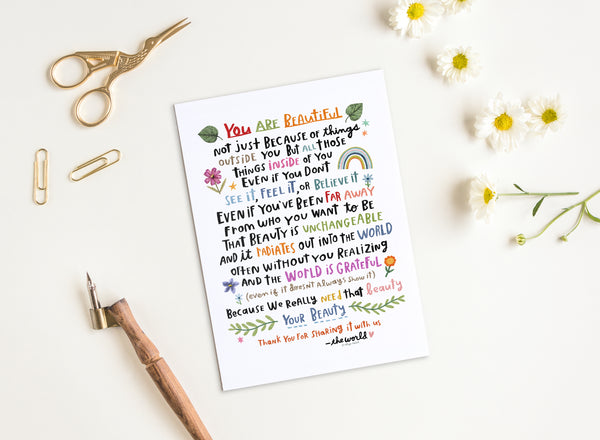 YOU ARE BEAUTIFUL
NOT JUST BECAUSE OF THINGS
OUTSIDE YOU BUT ALL THOSE
THINGS INSIDE OF YOU
EVEN IF YOU DON'T
SEE IT, FEEL IT, OR BELIEVE IT
EVEN IF YOU'VE BEEN FAR AWAY
FROM WHO YOU WANT TO BE
THAT BEAUTY IS UNCHANGEABLE
AND IT RADIATES OUT INTO THE WORLD
OFTEN WITHOUT YOU REALIZING
AND THE WORLD IS GRATEFUL
(even if it doesn't always show it)
BECAUSE WE REALLY NEED THAT beauty
YOUR BEAUTY
THANK YOU FOR SHARING IT WITH US
-the world